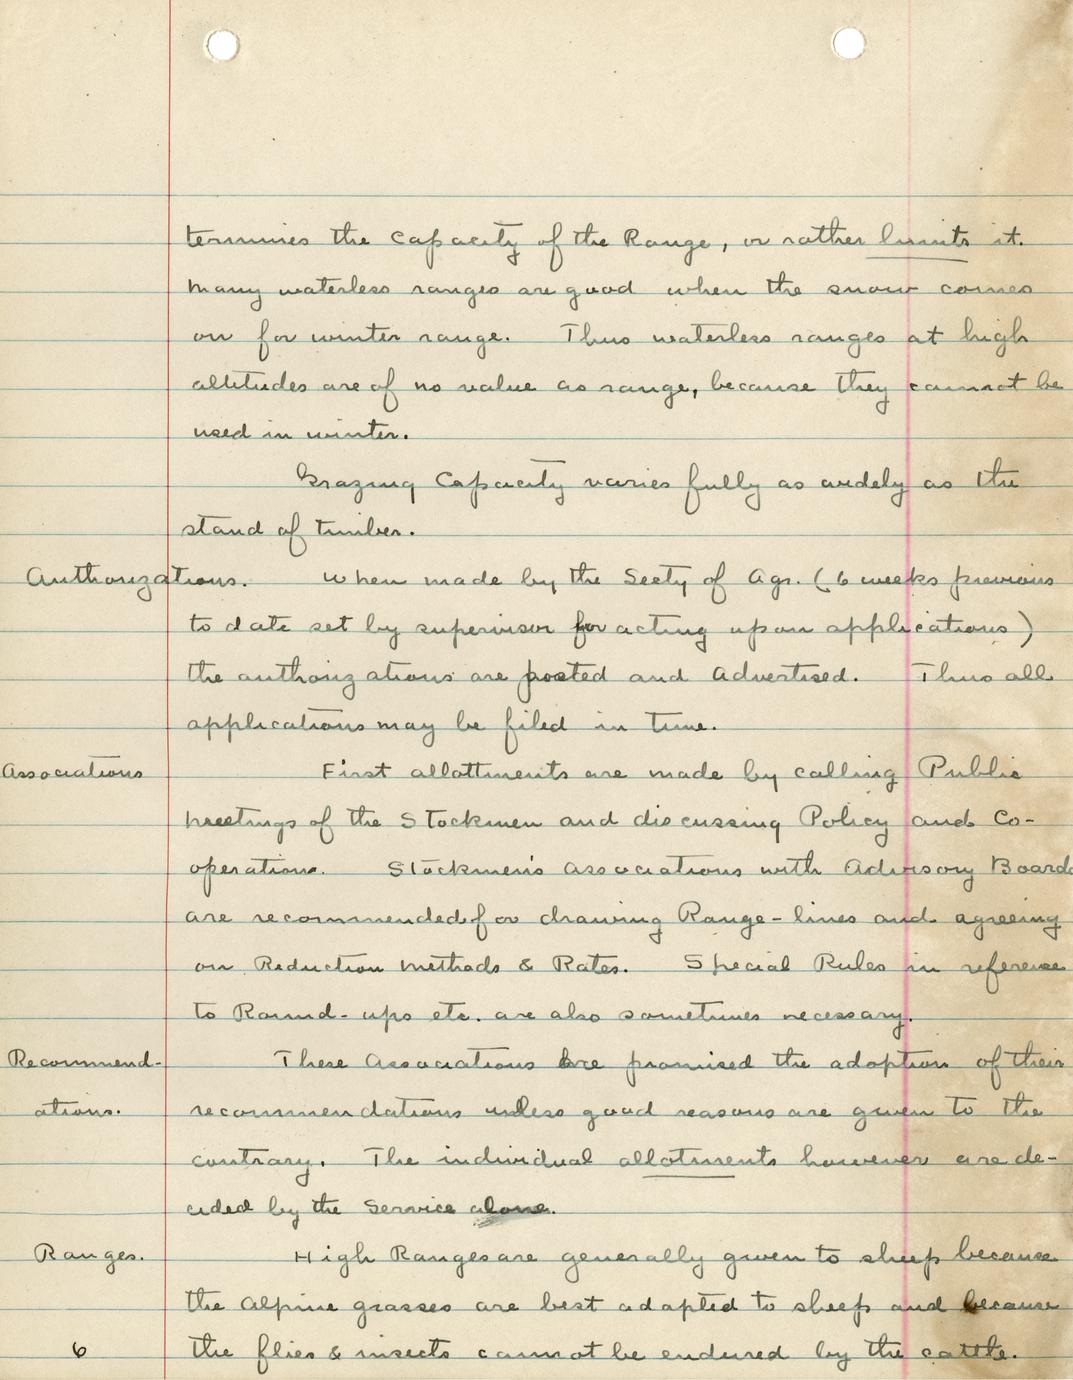 termines the Capacity of the Range, or rather limits it.
Many waterless ranges are good when the snow comes
on for winter range. Thus waterless ranges at high
altitudes are of no value as range, because they cannot be
used in winter.
Grazing Capacity varies fully as widely as the
stand of timber.
Authorizations. When made by the Secty of Agr. (6 weeks previous
to date set by supervisor for acting upon applications)
the authorizations are posted and Advertised. Thus all
applications may be filed in time.
Associations First allottments are made by calling Public
meetings of the Stockmen and discussing Policy and Co-
operation. Stockmen's associations with Advisory Boards
are recommended for drawing Range-lines and agreeing
on Reduction methods & Rates. Special Rules in reference
to Round-ups etc. are also sometimes necessary.
Recommend- These Associations are promised the adoption of their
ations. recommendations unless good reasons are given to the
contrary. The individual allotments however are de-
cided by the Service alone.
Ranges. High Ranges are generally given to sheep because
the Alpine grasses are best adapted to sheep and because
6 the flies & insects cannot be endured by the cattle.